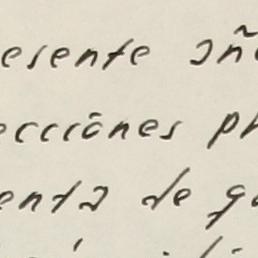 esente añ
ecciónes p
enta de g